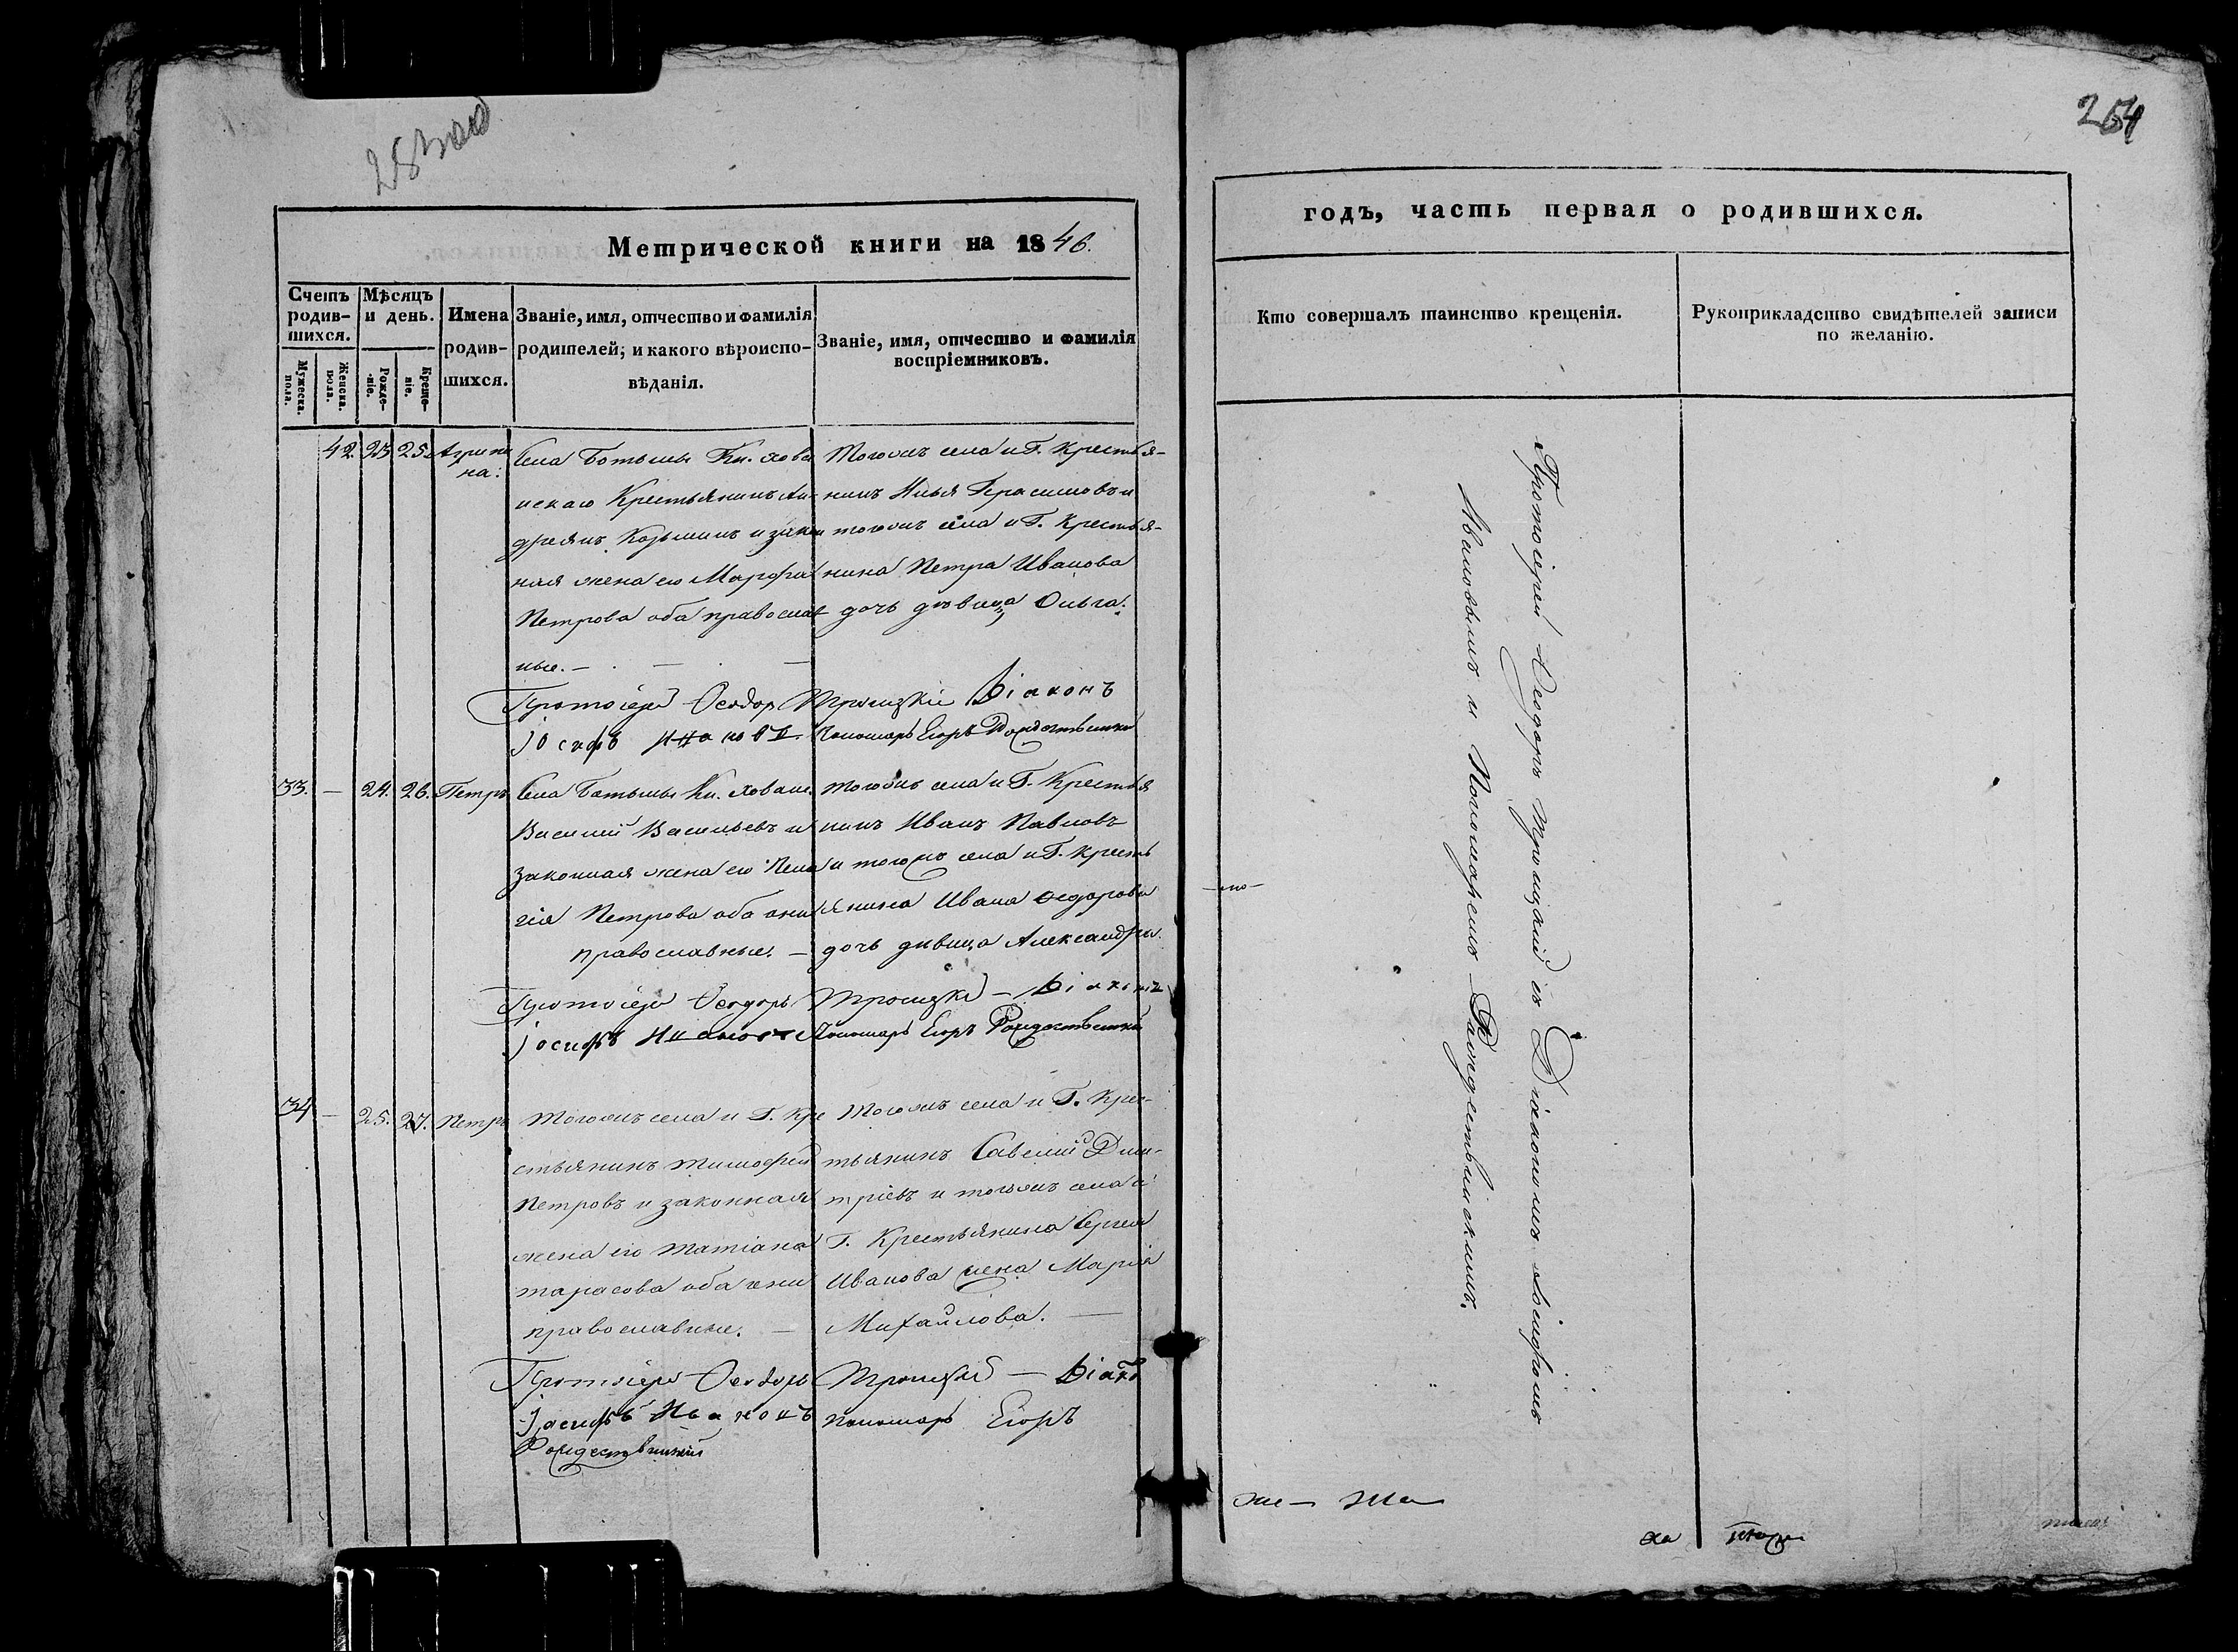 254
Метрической книги на 1846.
Счетъ родив-шихся.
Мѣсяцъ и день.
Имена родив-шихся.
Званіе, имя, отчество и фамилія родителей; и какого вѣроиспо-вѣданія.
Званіе, имя, отчество и фамилія воспріемниковъ.
Мужеска. пола.
Женска. пола.
Рожде-ніе.
Креще-ніе.
42. 23 25. Агрипи
на.
Села Батыева Кн. Хова
нскаго Крестьянинъ Ан-
дреянъ Козьминъ и закон
ная жена его Марфа
Петрова оба православ
ные. —
Тогожъ села и Г. Крестья-
нинъ Илья Герасимовъ и
тогожъ села и Г. Крестья-
нина Петра Иванова
дочь дѣвица Ольга.
Протоіерей Феодор Троицкій Діаконъ
Іосифъ Ивановъ Пономарь Егоръ Рождественскій
33. — 24. 26. Петръ
Села Кн. Хован.
Василий Васильевъ и
законная жена его Пела
гія Петрова оба они
православные. —
Тогожъ села и Г. Крестья
нинъ Иванъ Павловъ
и тогожъ села и Г. Кресть
янина Ивана Федорова
дочь дѣвица Александра.
Протоіерей Феодоръ Троицкій — Діаконъ
Іосифъ Ивановъ Пономарь Егоръ Рождественскій
34 — 25. 27. Петръ
Тогожъ села и Г. Кре
стьянинъ Тимофей
Петровъ и законная
жена его Татіана
Тарасова оба они
православные. —
Тогожъ села и Г. Крес-
тьянинъ Савелий Дми-
тріевъ и тогожъ села и
Г. Крестьянина Сергея
Иванова жена Марія
Михайлова. —
Протоіерей Феодоръ Троицкій — Діако
Іосифъ Ивановъ Пономарь Егоръ
Рождественскій
годъ, часть первая о родившихся.
Кто совершалъ таинство крещенія.
Рукоприкладство свидѣтелей записи по желанію.
Протоіерей Феодоръ Троицкій съ Діакономъ Іосифомъ
Ивановымъ и Пономаремъ Рождественскимъ.